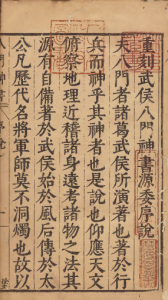 重刻武侯八門神書源委序說
夫八門者諸葛武侯所演者也著於行
兵而神乎其神者也是說也仰應天文
俯察地理近稽諸身遠考諸物之法其
源有自備者於武侯始於風后傳於太
公凡歷代名將軍師莫不洞燭也故以
八門神書 序說